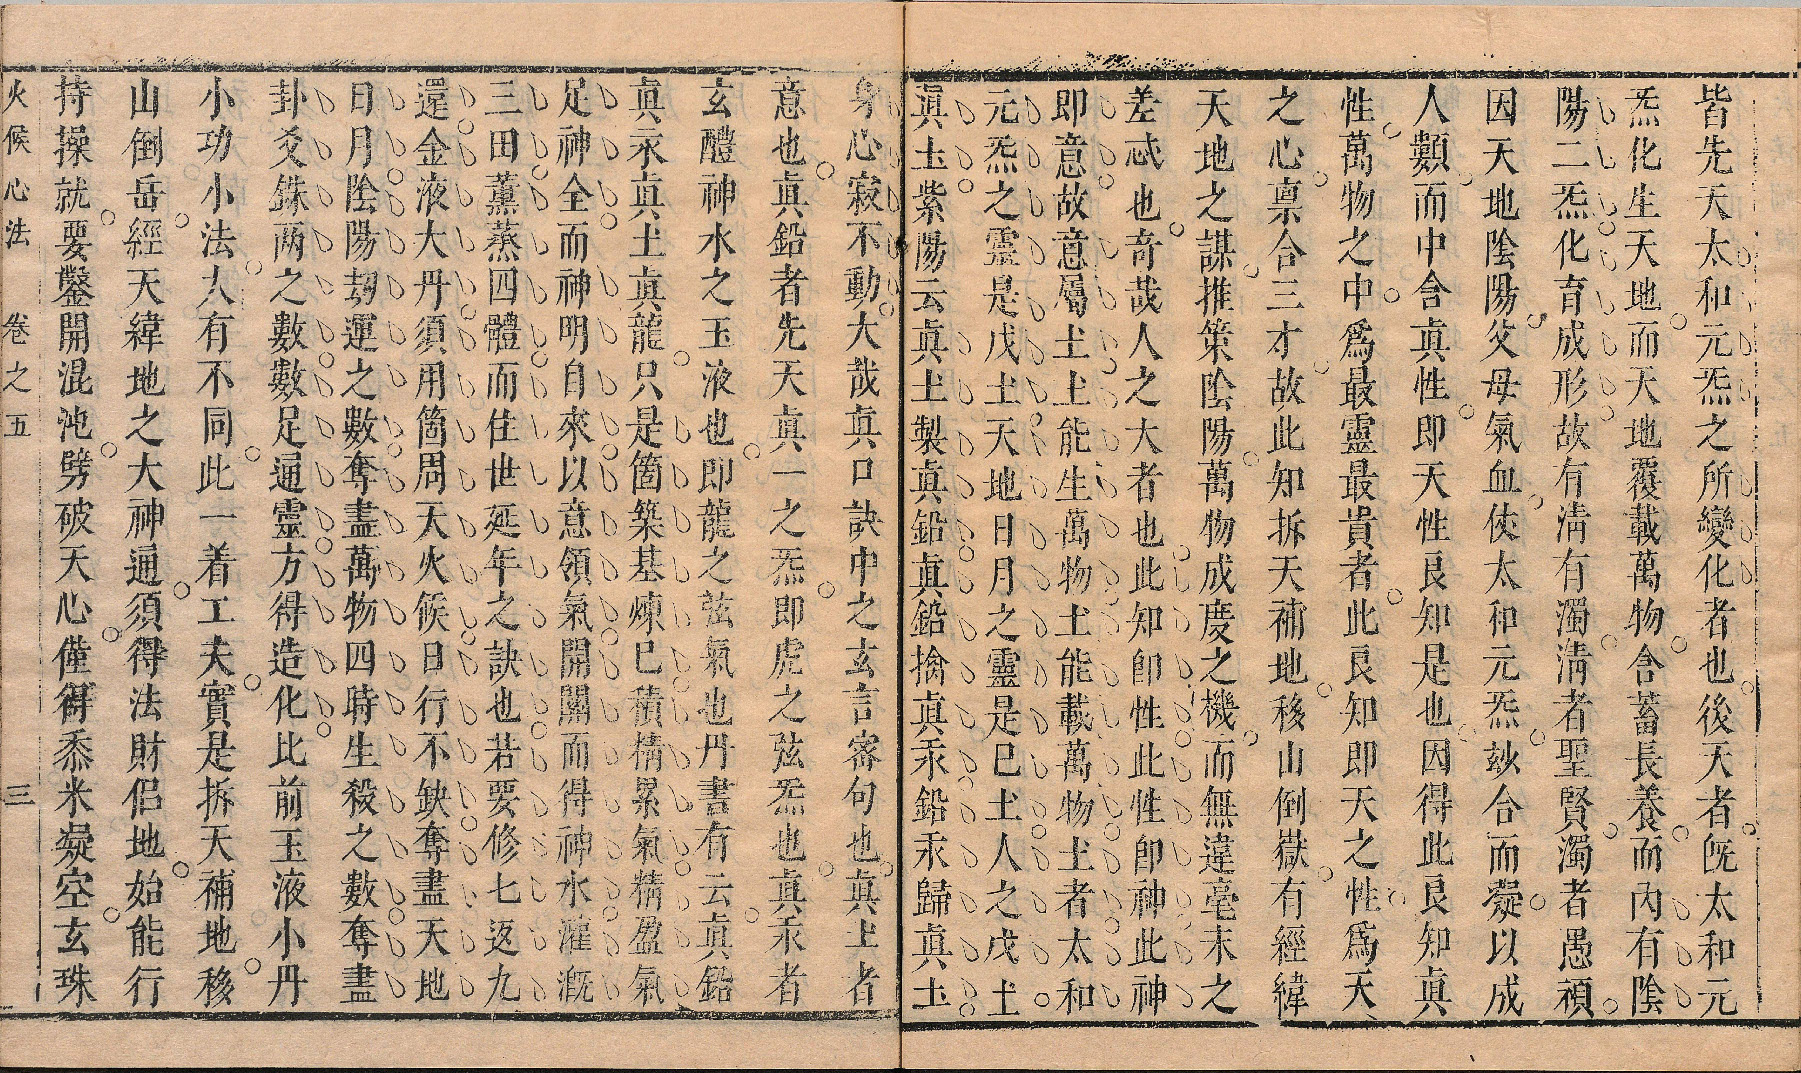 皆先天太和元炁之所變化者也後天者旣太和元
炁化生天地而天地覆載萬物含蓄長養而內有陰
陽二炁化育成形故有淸有濁淸者聖賢濁者愚頑
因天地陰陽父母氣血使太和元炁玅合而凝以成
人類而中含眞性即天性良知是也因得此良知眞
性萬物之中爲最靈最貴者此良知即天之性爲天
之心禀合三才故此知拆天補地移山倒嶽有經緯
天地之謀推策陰陽萬物成度之機而無違毫末之
差忒也奇哉人之大者也此知卽性此性卽神此神
即意故意屬土土能生萬物土能載萬物土者太和
元炁之靈是戊土天地日月之靈是巳土人之戊土
眞土紫陽云眞土製眞鉛眞鉛擒眞汞鉛汞歸眞土
身心寂不動大哉眞口訣中之玄言寄句也眞土者
意也眞鉛者先天眞一之炁即虎之弦炁也眞汞者
玄醴神水之玉液也即龍之弦氣也丹書有云眞鉛
眞汞眞土眞龍只是箇築基煉巳積精累氣精盈氣
足神全而神明自來以意領氣開關而得神水灌溉
三田薰蒸四體而住世延年之訣也若要修七返九
還金液大丹須用箇周天火候日行不缺奪盡天地
日月陰陽刼運之數奪盡萬物四時生殺之數奪盡
卦爻銖兩之數數足通靈方得造化比前玉液小丹
小功小法大有不同此一着工夫實是拆天補地移
山倒岳經天緯地之大神通須得法財侶地始能行
持操就要鑿開混沌劈破天心僅得黍米凝空玄珠
火候心法 卷之五 三